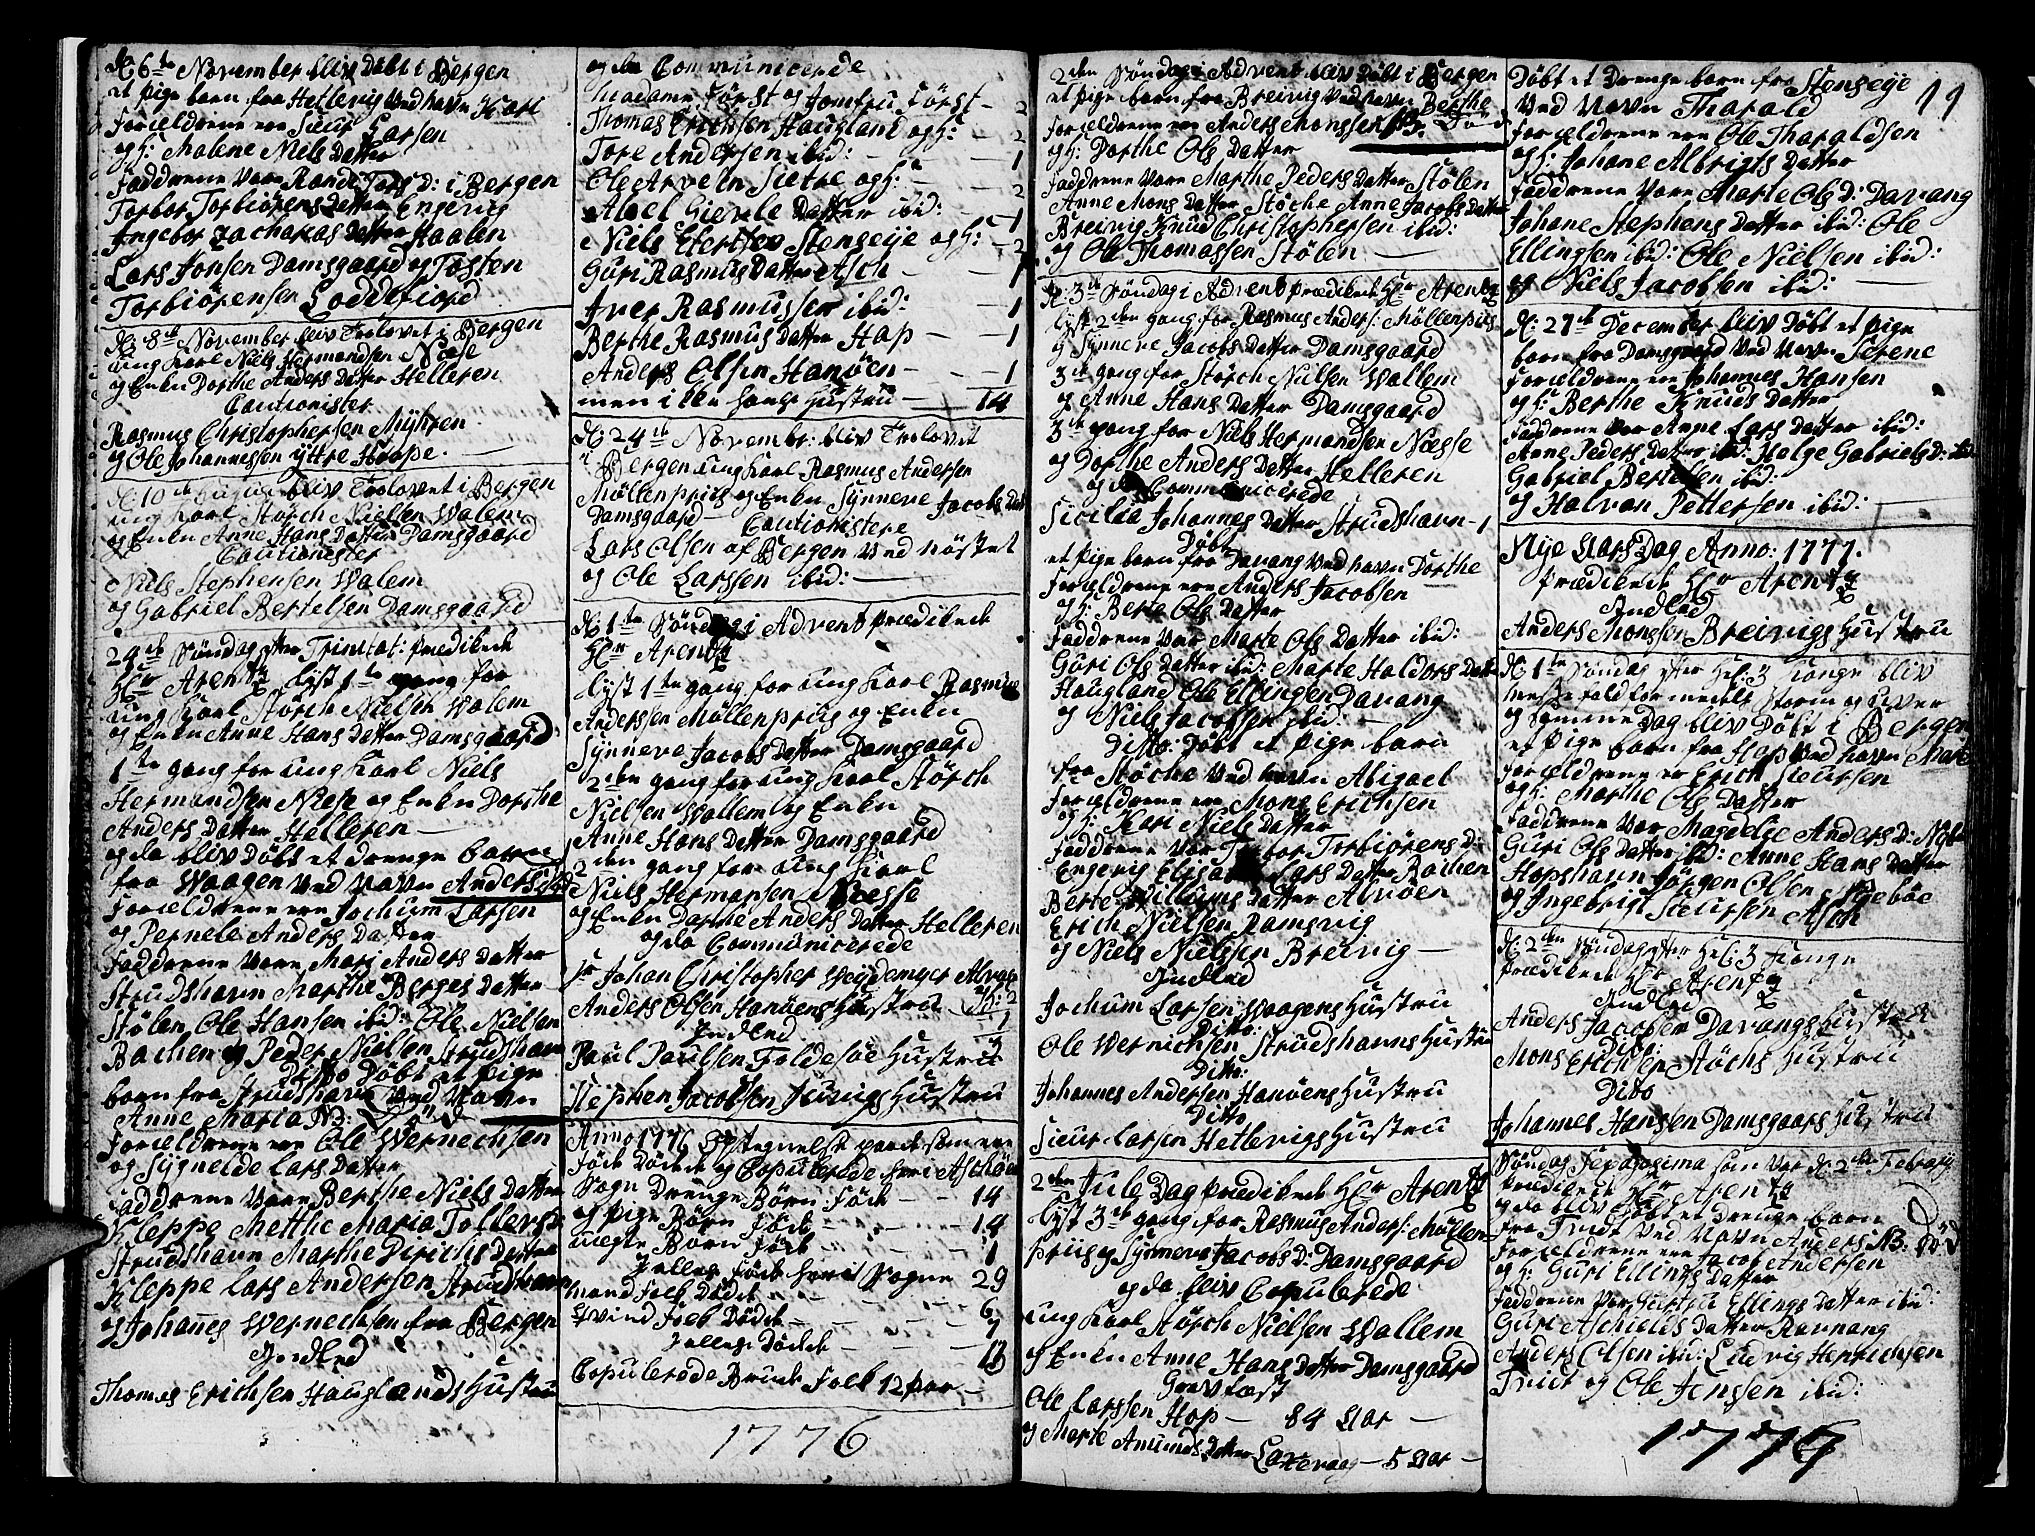 d: 6te November bliv Døbt i Bergen
et pige barn fra Hetlevig Ved Navn Kari
Forældrene ere Siur Larsen
og H: Malene Niels Datter
Faddrene Vare Rande Tors D: i Bergen
Torbor Torbiørens Datter Engevig
Ingebor Zacharias Datter Haalen
Lars Jonsen Damsgaard og Tosten
Torbiørensen Loddefiord
d: 8de November bliv Trolovet i Bergen
ung Karl Niels Hermandsen Næse
og Enke Dorthe Anders Datter Helleren
Cautionister
Rasmus Christophersen Myhren
og Ole Johannessen yttre Haape
d: 10de bliv Trolovet i Bergen
ung Karl Størch Nielsen Walem
og Enke Anne Hans Datter Damsgaard
Cautionister
Niels Stephensen Walem
og Gabriel Bertelsen Damsgaard
24de Søndag efter Trinitat: prædikede
Hr Arentz lyst 1te gang for
ung Karl Størch Nielsen Walem
og Enke Anne Hans Datter Damsgaard
1te gang for ung Karl Niels
Hermandsen Næse og Enke Dorthe
Anders Datter Helleren
og da bliv Døbt et Drenge Barn
fra Waagen Ved Navn Anders
Forældrene ere Jochum Larsen
og Pernele Anders Datter
Faddrene Vare Mari Anders Datter
Strudshavn Marthe Berges Datter
Stølen Ole Hansen ibid: Ole Nielsen
Bachen og Peder Nielsen Strudshavn
Ditto Døbt et pige
barn fra Strudshavn Ved Navn
Anne Maria NB: Død
Forældrene ere Ole Wernechsen
og Sygnelde Lars Datter
Faddrene Vare Berthe Niels Datter
Kleppe Mette Maria Tollers D
Strudshavn Marthe Dirichs Datter
Kleppe Lars Andersen Strudshavn
og Johannes Wernechsen fra Bergen
Indled
Thomas Erichsen Hauglands Hustru
og da Communicerde
Madame Først og Jomfru Først - 2
Thomas Erichsen Haugland og H: - 2
Tore Andersen ibid: - 1
Ole Arveln Sietre og H: - 2
Abel Gierle Datter ibid: - 1
Niels Efertsen Stenseije og H: - 2
Guri Rasmus Datter Asch - 1
Iver Rasmussen ibid: - 1
Berthe Rasmus Datter Hop - 1
Anders Olsen Hanøen - 1
men ikke hands Hustru - 14
d: 24de November bliv Trolovet
i Bergen ung Karl Rasmus Andersen
Møllenpriis og Enke Synneve Jacobs Dat
Damsgaard Cautionistere
Lars Olsen af Bergen Ved Nøstet
og Ole Larssen ibid:
d: 1te Søndag i Advent prædikede
Hr Arentz
lyst 1te gang for ung Karl Rasmus
Anderssen Møllenpriis og Enke
Synneve Jacobs Datter Damsgaard
2den gang for ung Karl Størch
Nielsen Wallem og Enke
Anne Hans Datter Damsgaard
2den gang for ung Karl
Niels Hermansen Næsse
og Enke Dorthe Anders Datter Helleren
og da Communicerede
Sr Johan Christopher Heydemyer Alvøe
Anders Olsen Hanøens Hustru
Indled
Paul Paulsen Foldesøe Hustru
Stephen Jacobsen Juvigs Hustru
Anno 1776 Optegnelse paa de som ere
Føde Døde og Copulerede heri Aschøen
Sogn Drenge Børn Føde - 14
og pige Børn Føde - 14
uægte Børn Født - 1
Tilles Føde heri Sogne 29
Mand Folk Døde - 6
Qvind Folk Døde - 7
Tilles Døde - 13
Copulerede Brude Folk 12 par
1776
2den Søndag i Advent bliv Døbt i Bergen
et pige barn fra Breivig Ved Navn Berthe
Forældrene ere Anders Monssen NB. Død
og H: Dorthe Ols Datter
Faddrene Vare Marthe Peders Datter Stølen
Anne Mons Datter Støche Anne Jacobs Datter
Breivig Knud Christophersen ibid:
og Ole Thomassen Stølen
d: 3de Søndag i Advent prædikede Hr Arentz
lyst 2den gang for Rasmus Anders: Møllenpriis
og Synneve Jacobs Datter Damsgaard
3de gang for Størch Nielsen Wallem
og Anne Hans Datter Damsgaard
3de gang for Niels Hermandsen Næsse
og Dorthe Anders Datter Helleren
og da Communicerede
Sicilia Johannes Datter Strudshavn - 1
Døbt
et pige barn fra Davang Ved Navn Dorthe
Forældrene ere Anders Jacobsen
og H: Berte Ols Datter
Faddrene Var Marte Ols Datter ibid:
Guri Ols Datter ibid: Marte Haldors Datter
Haugland Ole Ellingen Davang
og Niels Jacobsen ibid:
Ditto: Døbt et pige barn
fra Støche Ved Navn Abigael
Forældrene ere Mons Erichsen
og H: Kari Niels Datter
Faddrene Var Torbor Torbiørens D:
Engevig Elisa Lars Datter Bachen
Berte Willums Datter Alvøen
Erich Nielsen Ramsvig
og Niels Nielssen Breivig
Indled
Jochum Larsen Waagens Hustru
Ditto:
Ole Wernichsen Strudshavns Hustru
Ditto:
Johannes Andersen Hanøens Hustru
Ditto
Siur Larsen Hetlevigs Hustru
2den Jule Dag prædikede Hr Arentz
lyst 3de gang for Rasmus Anders: Møllen
priis og Synneve Jacobs D: Damsgaard
og da bliv Copulerede
ung Karl Størch Nielsen Wallem
og Enke Anne Hans Datter Damsgaard
Grav fæst
Ole Larssen Hop - 84 Aar
og Marte Amunds Datter - 5 Aar
19
Døbt et Drenge barn fra Stenseije
Ved Navn Tharald
Forældrene ere Ole Tharaldsen
og H: Johane Albrigts Datter
Faddrene Vare Marte Ols D: Davang
Johane Stephens Datter ibid: Ole
Ellingsen ibid: Ole Nielsen ibid:
og Niels Jacobsen ibid:
d: 27de December bliv Døbt et pige
barn fra Damsgaard Ved Navn Serene
Forældrene ere Johannes Hansen
og H: Berthe Knuds Datter
Faddrene Var Anne Lars Datter ibid:
Anne Peders Datter ibid: Helge Gabriels D: ibid
Gabriel Bertelsen ibid:
og Halvan Pettersen ibid:
Nye Aars Dag Anno: 1777.
prædikede Hr Arentz
Indled
Anders Monssen Breivigs Hustru
d: 1te Søndag efter Hel: 3 Konge bliv
Messe fald formedelst Storm og
og samme Dag bliv Døbt i Bergen
et pige barn fra Hop Ved Navn Marte
Forældrene er Erich Siursen
og H: Marthe Ols Datter
Faddrene Var Magdelje Anders D:
Guri Ols Datter ibid: Anne Hans Datter
Hopshavn Jørgen Olsen
og Ingebrigt Siursen Asch
d: 2den Søndag efter Hel: 3 Konge
prædikede Hr Arentz
Indled
Anders Jacobsen Davangs Hustru
Ditto:
Mons Erichsen Støchs Hustru
Ditto
Johannes Hanssen Damsgaars Hustru
Søndag Sexagesima som Var d: 2de Februarij
prædikede Hr Arentz
og da bliv Døbt et Drenge barn
fra Triet Ved Navn Anders NB. Død
Forældrene ere Jacob Andersen
og H: Guri Ellings Datter
Faddrene Var Giertru Ellings Datter ibid:
Guri Aschields Datter Ravnang
Anders Olsen ibid: Ludvig Henrichsen
Triet og Ole Jenssen ibid:
1776